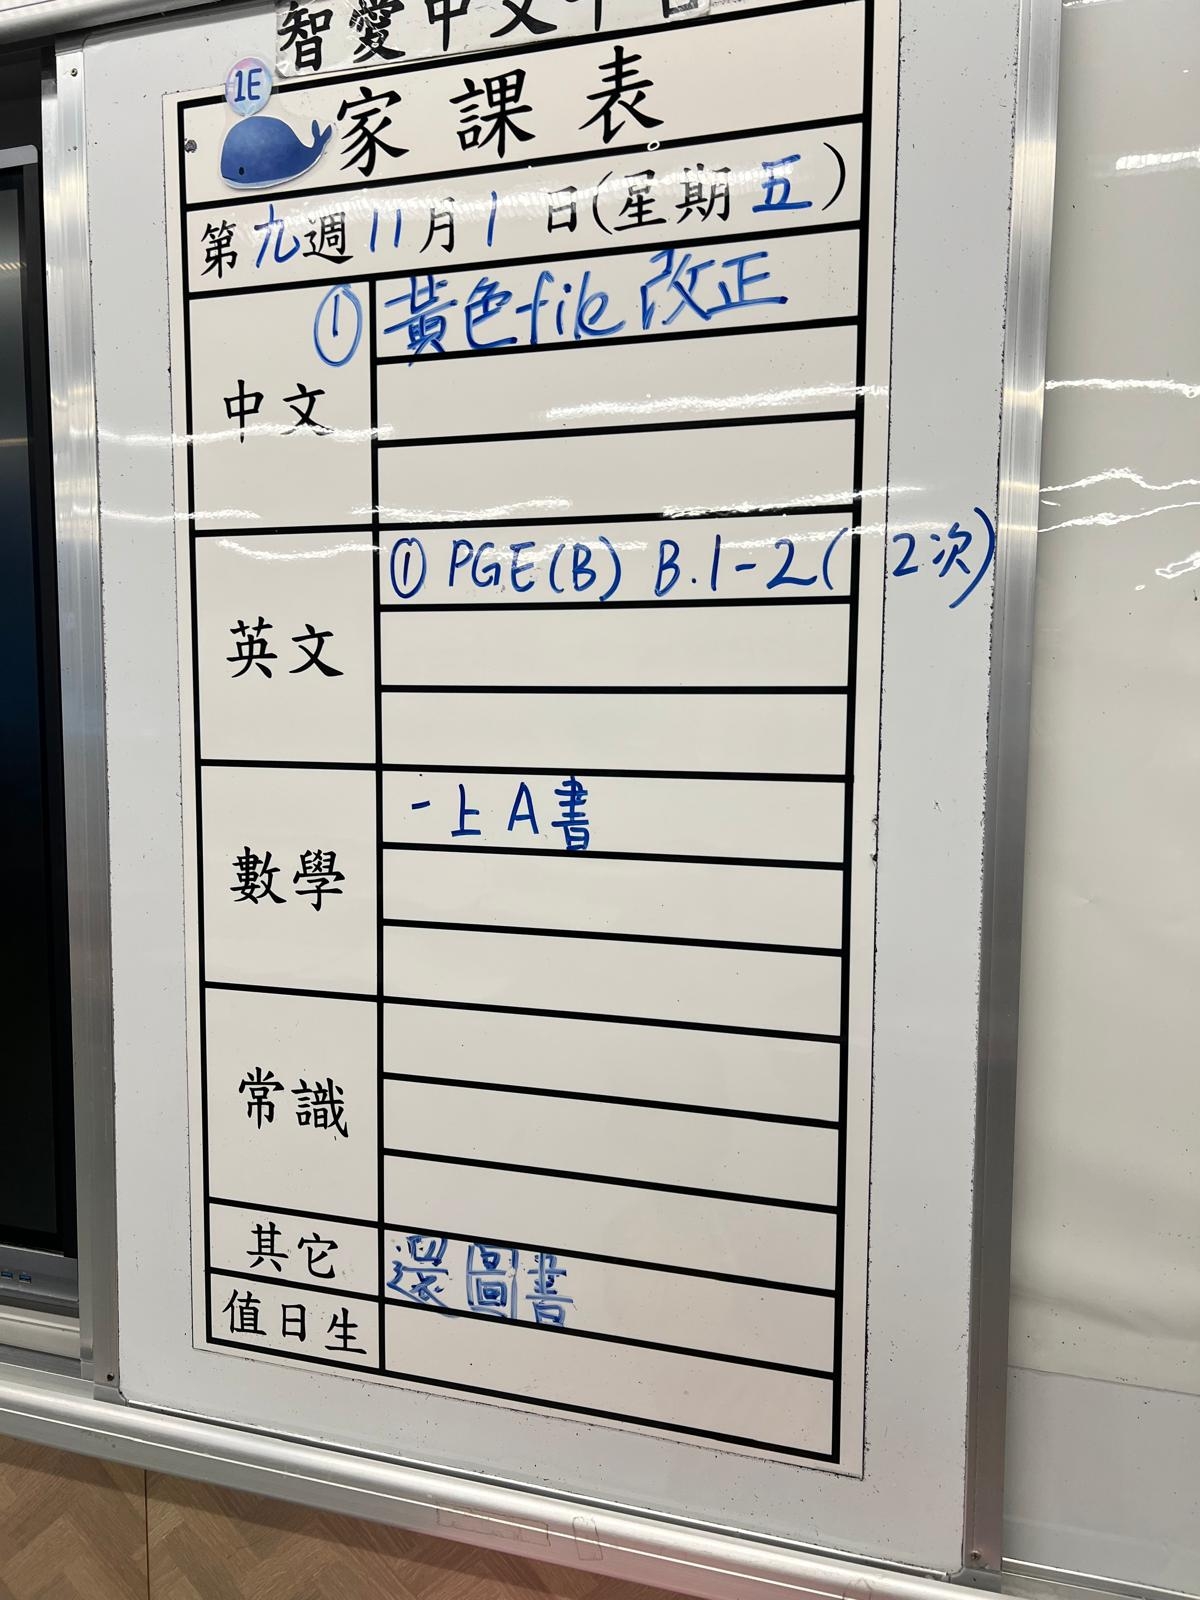 智愛中文平台
1E
家課表
第九週11月1日(星期五)
中文
① 黃色file改正
英文
① PGE(B) B.1-2( 2次)
數學
-上A書
常識
其它
還圖書
值日生